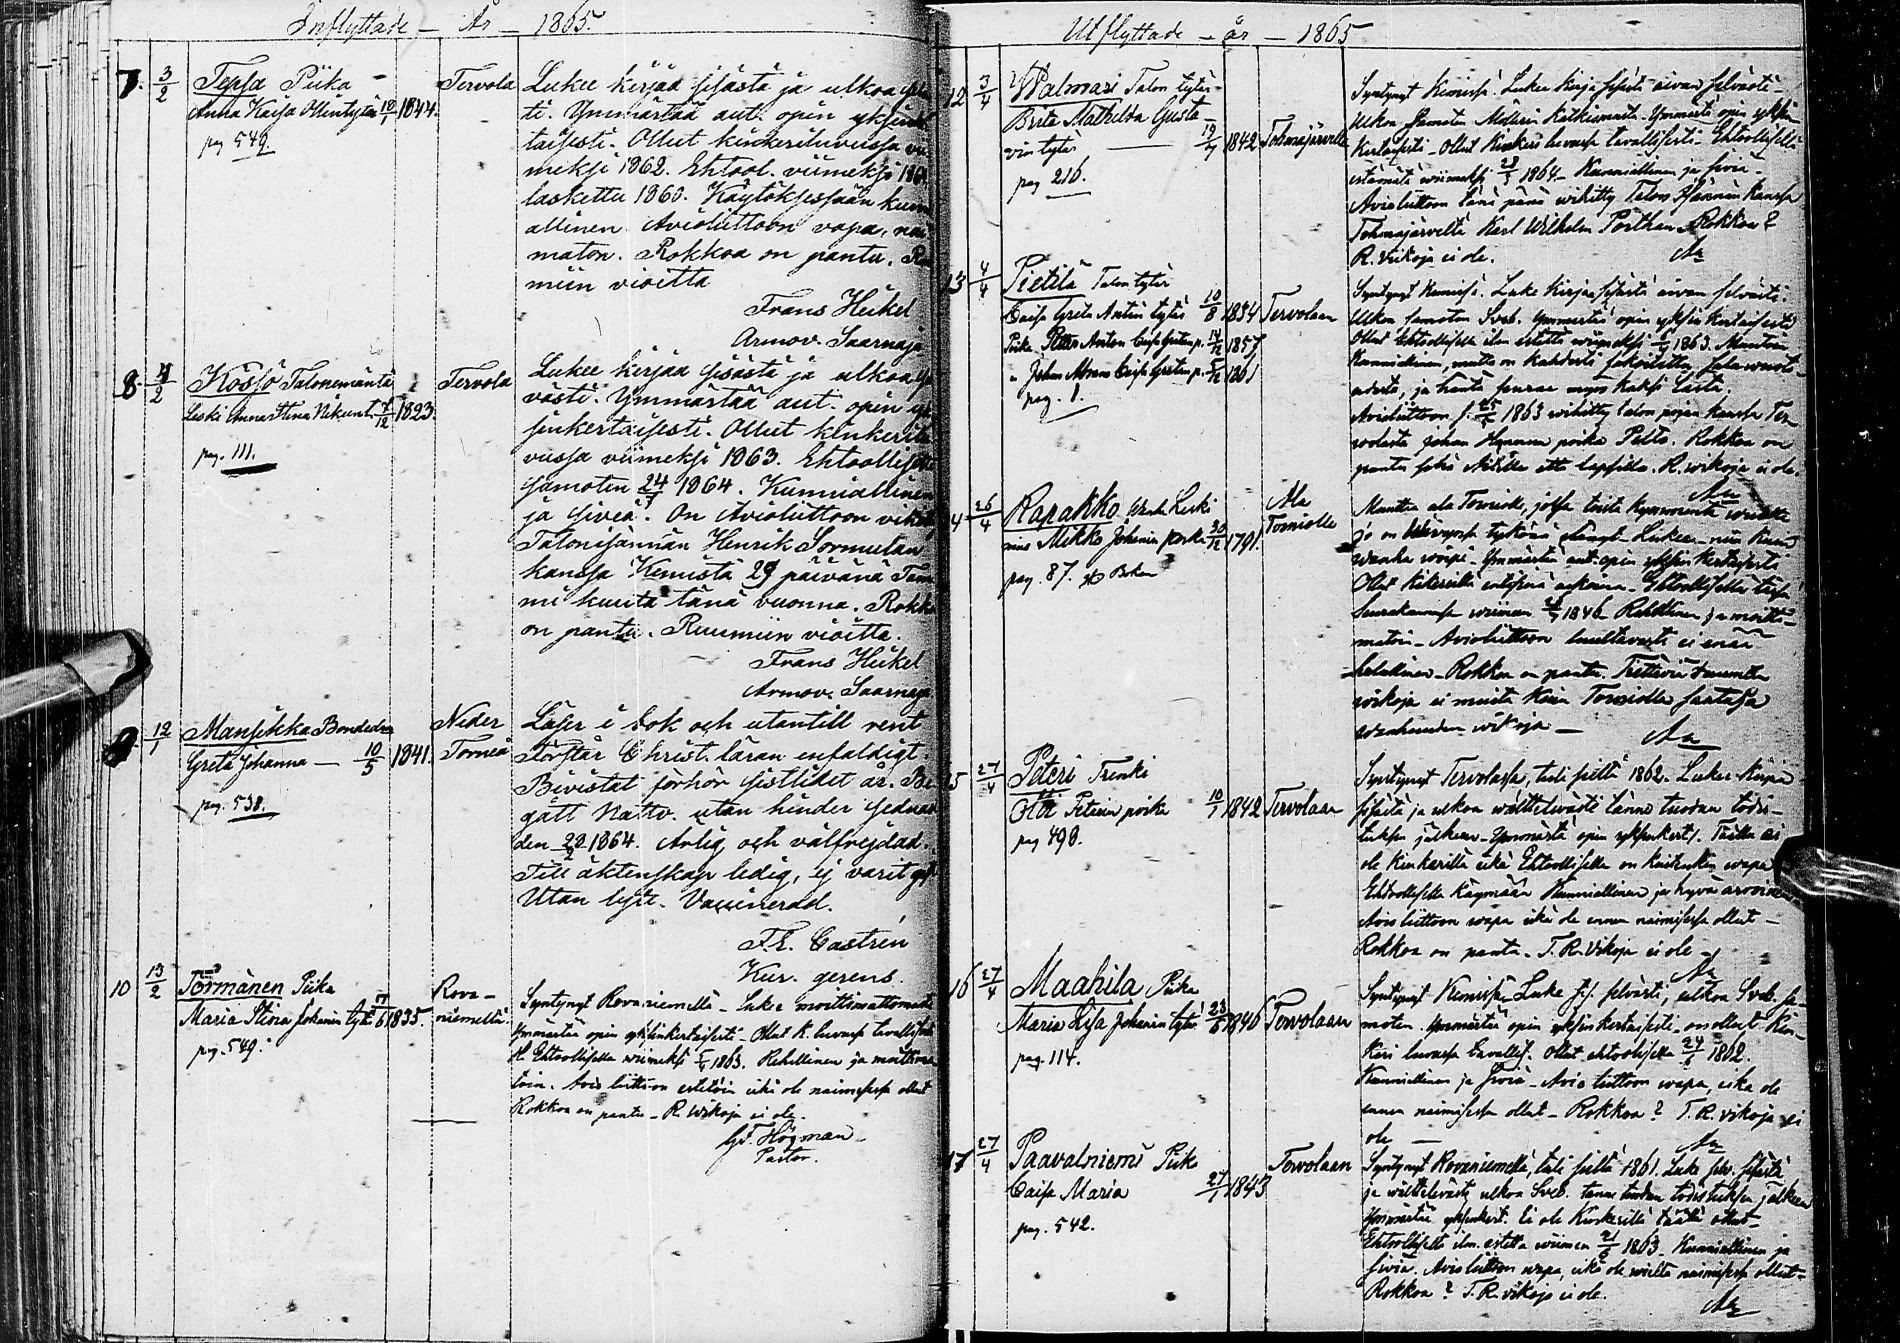 Inflyttade — År — 1865.
7. 3/2 Tepsa Piika
Anna Kaisa Ollintytär 10/1 1844.
pag 549.
Tervola
Lukee kirjaa sisästä ja ulkoa
ti. Ymmärtää aut. opin yksink
taisesti. Ollut kinkeriluvussa vii
meksi 1862. Ehtool. viimeksi
laskettu 1860. Käytöksessään kunn
allinen. Avioliittoon vapa, nai
maton. Rokkoa on pantu. Ru
miin vioitta
Frans Heikel
Armov. Saarnaja
8 4/2 Kössö Talonemäntä
Leski Anna Stina Nikunt. 4/12 1823.
pag. 111.
Tervola
Lukee kirjaa sisästä ja ulkoa
västi. Ymmärtää aut. opin y
sinkertaisesti. Ollut kinkerilu
vussa viimeksi 1863. Ehtoollisella
samoten 24/7 1864. Kunniallinen
ja siveä. On Avioliittoon vihit
Talonisännän Henrik Sormulan
kanssa Kemistä 29 päivänä Tam
mi kuuta tänä vuonna. Rokko
on pantu. Ruumiin vioitta.
Frans Heikel
Armov. Saarnaja
9. 12/1 Mansikka Bondedr
Greta Johanna — 10/5 1841.
pag. 538.
Neder
Torneå
Läser i bok och utantill rent
Förstår Christ. läran enfaldigt.
Bevistat förhör sistlidet år. Be
gått Nattv. utan hinder sednast
den 20/2 1864. Ärlig och välfrejdad.
Till äktenskap ledig, ej varit gift
Utan lyte. Vaccinerad.
F. E. Castrén
Kur. gerens.
10 13/2 Törmänen Piika
Maria Stina Johanin tytr 17/6 1835.
pag. 549.
Rova-
niemeltä.
Syntynyt Rovaniemellä - Lukee moittimattomasti
Ymmärtää opin yksinkertaisesti - Ollut k. luvussa tavallis
H. Ehtoollisella wiimeksi 1863. Rehellinen ja moittima
toin. Avio liittoon esteetöin eikä ole naimisessa ollut
Rokkoa on pantu - R. Wikoja ei ole.
Gf. Högman
Pastor.
Utflyttade - år - 1865
12 3/4 Walmari Talon tytär-
Brita Mathilda Gusta-
vin tytär — 19/7 1842
pag. 216.
Tohmajärvelle
Syntynyt Kemissä. Lukee Kirja sisästä aivan selvästi-
Ulkoa samoten Möllerin kätkismusta. Ymmärtä opin yksin
kertaisesti - Ollut Kinkeri luvussa tavallisesti. Ehtoollisella
estämätä wiimeksi 1864. Kunniallinen ja siviä -
Avioliittoon tänä päivä wihitty Talon Isännän kanssa
Tohmajärveltä Karl Wilhelm Porthan. Rokkoa?
R. wikoja ei ole.
13 4/4 Pietilä Talon tytär
Caisa Greta Antin tytär 10/8 1834
Poika Petter Anton Caisa Gretan p. 14/12 1857
" Johan Abram Caisa Gretan p. 5/12 1861
pag. 1.
Tervolaan
Syntynyt Kemissä. Lukee Kirjaa sisästä aivan selvästi.
Ulkoa samoten Sveb. Ymmärtää opin yksin kertaisesti
Ollut Ehtoollisella ilm estettä wiimeksi 1863. Muutoin
Kunniallinen, mutta on kahdesti sakoitettu sala wuot-
udesta, ja häntä seuraa myös kaksi lasta.
Avioliittoon s. 25/5 1863 wihitty talon pojan kanssa Ter
wolasta Johan Hermanin poika Pelto. Rokkoa on
pantu sekä äitille että lapsille. R. wikoja ei ole.
14 26/4 Rapakko Wanha Leski
mies Mikko Johanin poika 30/12 1791.
pag. 87.
Ala
Torniolle
Muutta ala Tornioon, jossa toista kymmentä wuotta
jo on Wävynsä tykönä elänyt - Lukee - niin kuin
wanha woipi. Ymmärtä aut. opin yksin kertaisesta
Seurakunnassa wiimen 1846. Rehellinen ja moitti-
matoin - Avioliittoon luultavasti ei enää
halullinen - Rokkoa on pantu.
wikoja ei muita kuin Torniolla sartassa
wanhuuden wikoja —
15 27/4 Peteri Trenki
Olli Peterin poika 10/1 1842
pag 498.
Tervolaan
Syntynyt Tervolassa, tuli sieltä 1862. Lukee Kirja
sisästä ja ulkoa wälttelevästi tänne tuodun todis-
tuksen jälkeen - Ymmärtä opin yksinkert. Täällä ei
ole Kinkerillä eikä Ehtoollisella on kuitenkin wapa
Ehtoollisella käymään Kunniallinen ja hyvä arvoinen
Avio liittoon wapa eikä ole ennen naimisessa ollut -
Rokkoa on pantu. T. R. Vikoja ei ole -
16 27/4 Maahila Piika
Maria Lisa Johanin tytär 23/5 1846
pag. 114.
Tervolaan
Syntynyt Kemissä. Lukee s.s. selvästi, ulkoa Sveb. sa-
moten. Ymmärtää opin yksinkertaisesti - on ollut Kin-
keri luvussa tavallis. Ollut ehtoolisella 24/8 1862.
Kunniallinen ja siviä - Avio liittoon wapa eikä ole
ennen naimisessa ollut - Rokkoa? T. R. vikoja ei
ole —
17 27/4 Paavalniemi Piika
Caisa Maria 27/1 1843
pag. 542.
Tervolaan
Syntynyt Rovaniemellä, tuli sieltä 1861. Lukee selv. sisästä
ja wälttelevästi ulkoa Sveb. tänne tuodun todistuksen jälkeen
Ymmärtää yksinkert. Ei ole Kinkerillä täällä ollut -
Ehtoollisella ilm. estettä wiimen 21/6 1863. Kunniallinen ja
siviä. Avioliittoon wapa, eikä ole wielä naimisessa ollut -
Rokkoa? T. R. vikoja ei ole.